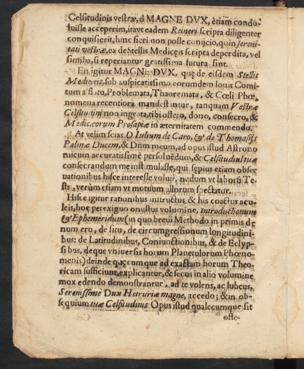 Celsitudinis vestræ, ô MAGNE DVX, etiam condo-
luisse acceperim, itavt eadem Reineri scripta diligenter
conquisierit, hinc fieri non posse conijcio, quin sereni-
tati vestræ, ea de Stellis Mediceis scripta deperdita, vel
si reperiantur gratissima futura sint.
En igitur MAGNE DVX, quę de eisdem Stellis
Mediceis, sub auspicatissimo eorumdem Iouis Comi-
tum astro, Problemata, Theoremata, & Cœli Phæ-
nomena recentiora manifestantur, tanquam Vestræ
Celsitudini non ingrata, tibi offero, dono, consecro, &
Mediceorum Prosapiæ in æternitatem commendo.
At velim scias O
Palmæ Ducem, & Dum meum, ad opus istud Astrono-
micum accuratissimè persoluẽdum, & Celsitudini tuæ
consecrandum me instimulasse, qui sępius etiam obser-
uationibus hisce interesse voluit, nedum vt laboris Te-
stis, verùm etiam vt motuum illorum spectator.
Hisce igitur rationibus instructus, & his coactus acu-
leis, hoc perexiguo onustus volumine, Introductionem
& Ephemeridum (in quo breui Methodo in primis de
numero, de situ, de circumgressionum longitudini-
bus: de Latitudinibus, Coniunctionibus, & de Eclyp-
sibus, deque vniuersis horum Planetulorum Phæno-
menis) deinde quęcumque ad exactam horum Theo-
ricam sufficiunt, explicantur, & secus in alio volumine
mox edendo demonstrantur, ad te volens, ac lubens,
Serenissime Dux Hetruriæ magne, accedo; & in ob-
sequium tuæ Celsitudinis Opus istud qualecumque sit
offe-